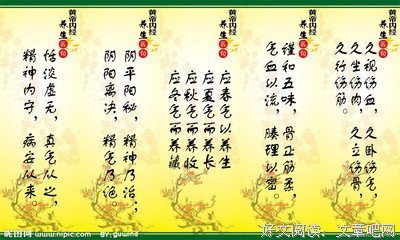 黄帝内经
养生名句
久视伤血，久卧伤气，
久坐伤肉，久立伤骨，
久行伤筋。
黄帝内经
养生名句
谨和五味，骨正筋柔，
气血以流，腠理以密。
黄帝内经
养生名句
应春气以养生
应夏气而养长
应秋气而养收
应冬气而养藏
黄帝内经
养生名句
阴平阳秘，精神乃治；
阴阳离决，精气乃绝。
黄帝内经
养生名句
恬淡虚无，真气从之，
精神内守，病安从来。
昵图网 www.nipic.com
By: guwind
好文阅读，文章吧网